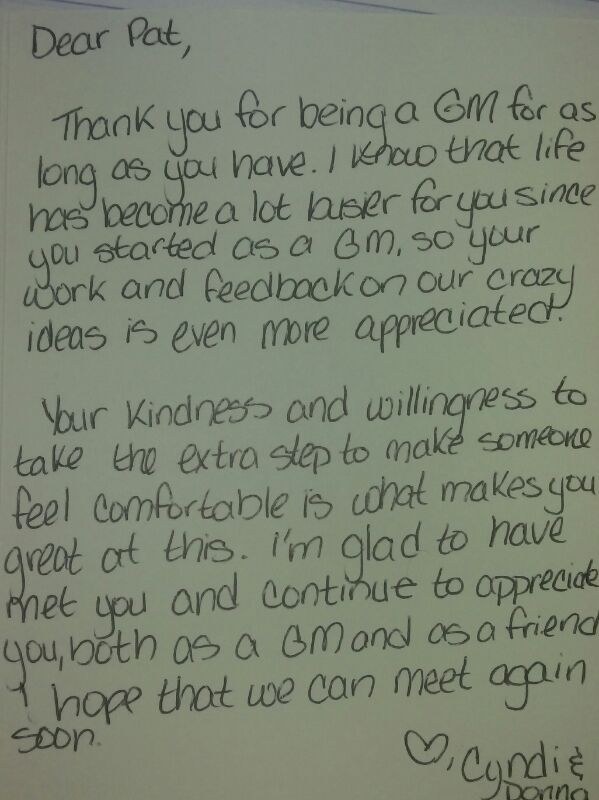 Dear Pat,
Thank you for being a GM for as
long as you have. I know that life
has become a lot busier for you since
you started as a GM, so your
work and feedback on our crazy
ideas is even more appreciated.
Your kindness and willingness to
take the extra step to make someone
feel comfortable is what makes you
great at this. I'm glad to have
met you and continue to appreciate
you, both as a GM and as a friend
I hope that we can meet again
soon.
♡, Cyndi &
Donna